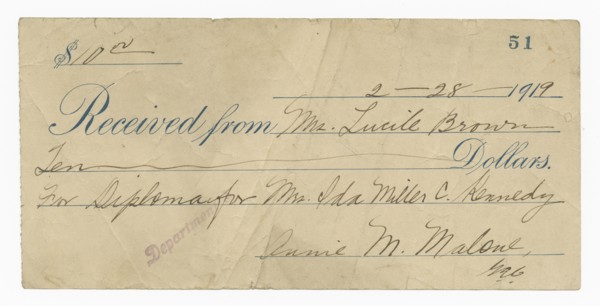 $10 00
51
2-28-1919
Received from Mrs. Lucile Brown
Ten Dollars.
For Diploma for Mrs. Ida Miller C. Kennedy
Department
Annie M. Malone,